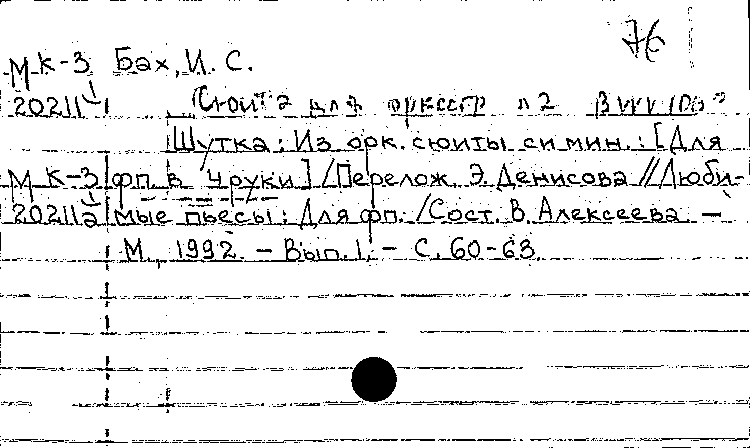 76
МК-3 Бах, И. С.
20211 Сюита для оркестр n2 BWV 106
Шутка: Из орк. сюиты си мин.: [Для
МК-3 фп. в 4 руки] / Перелож. Э. Денисова // Люби-
20211 мые пьесы: Для фп. / Сост. В. Алексеева. —
М., 1992. – Вып. 1. – С. 60-63.